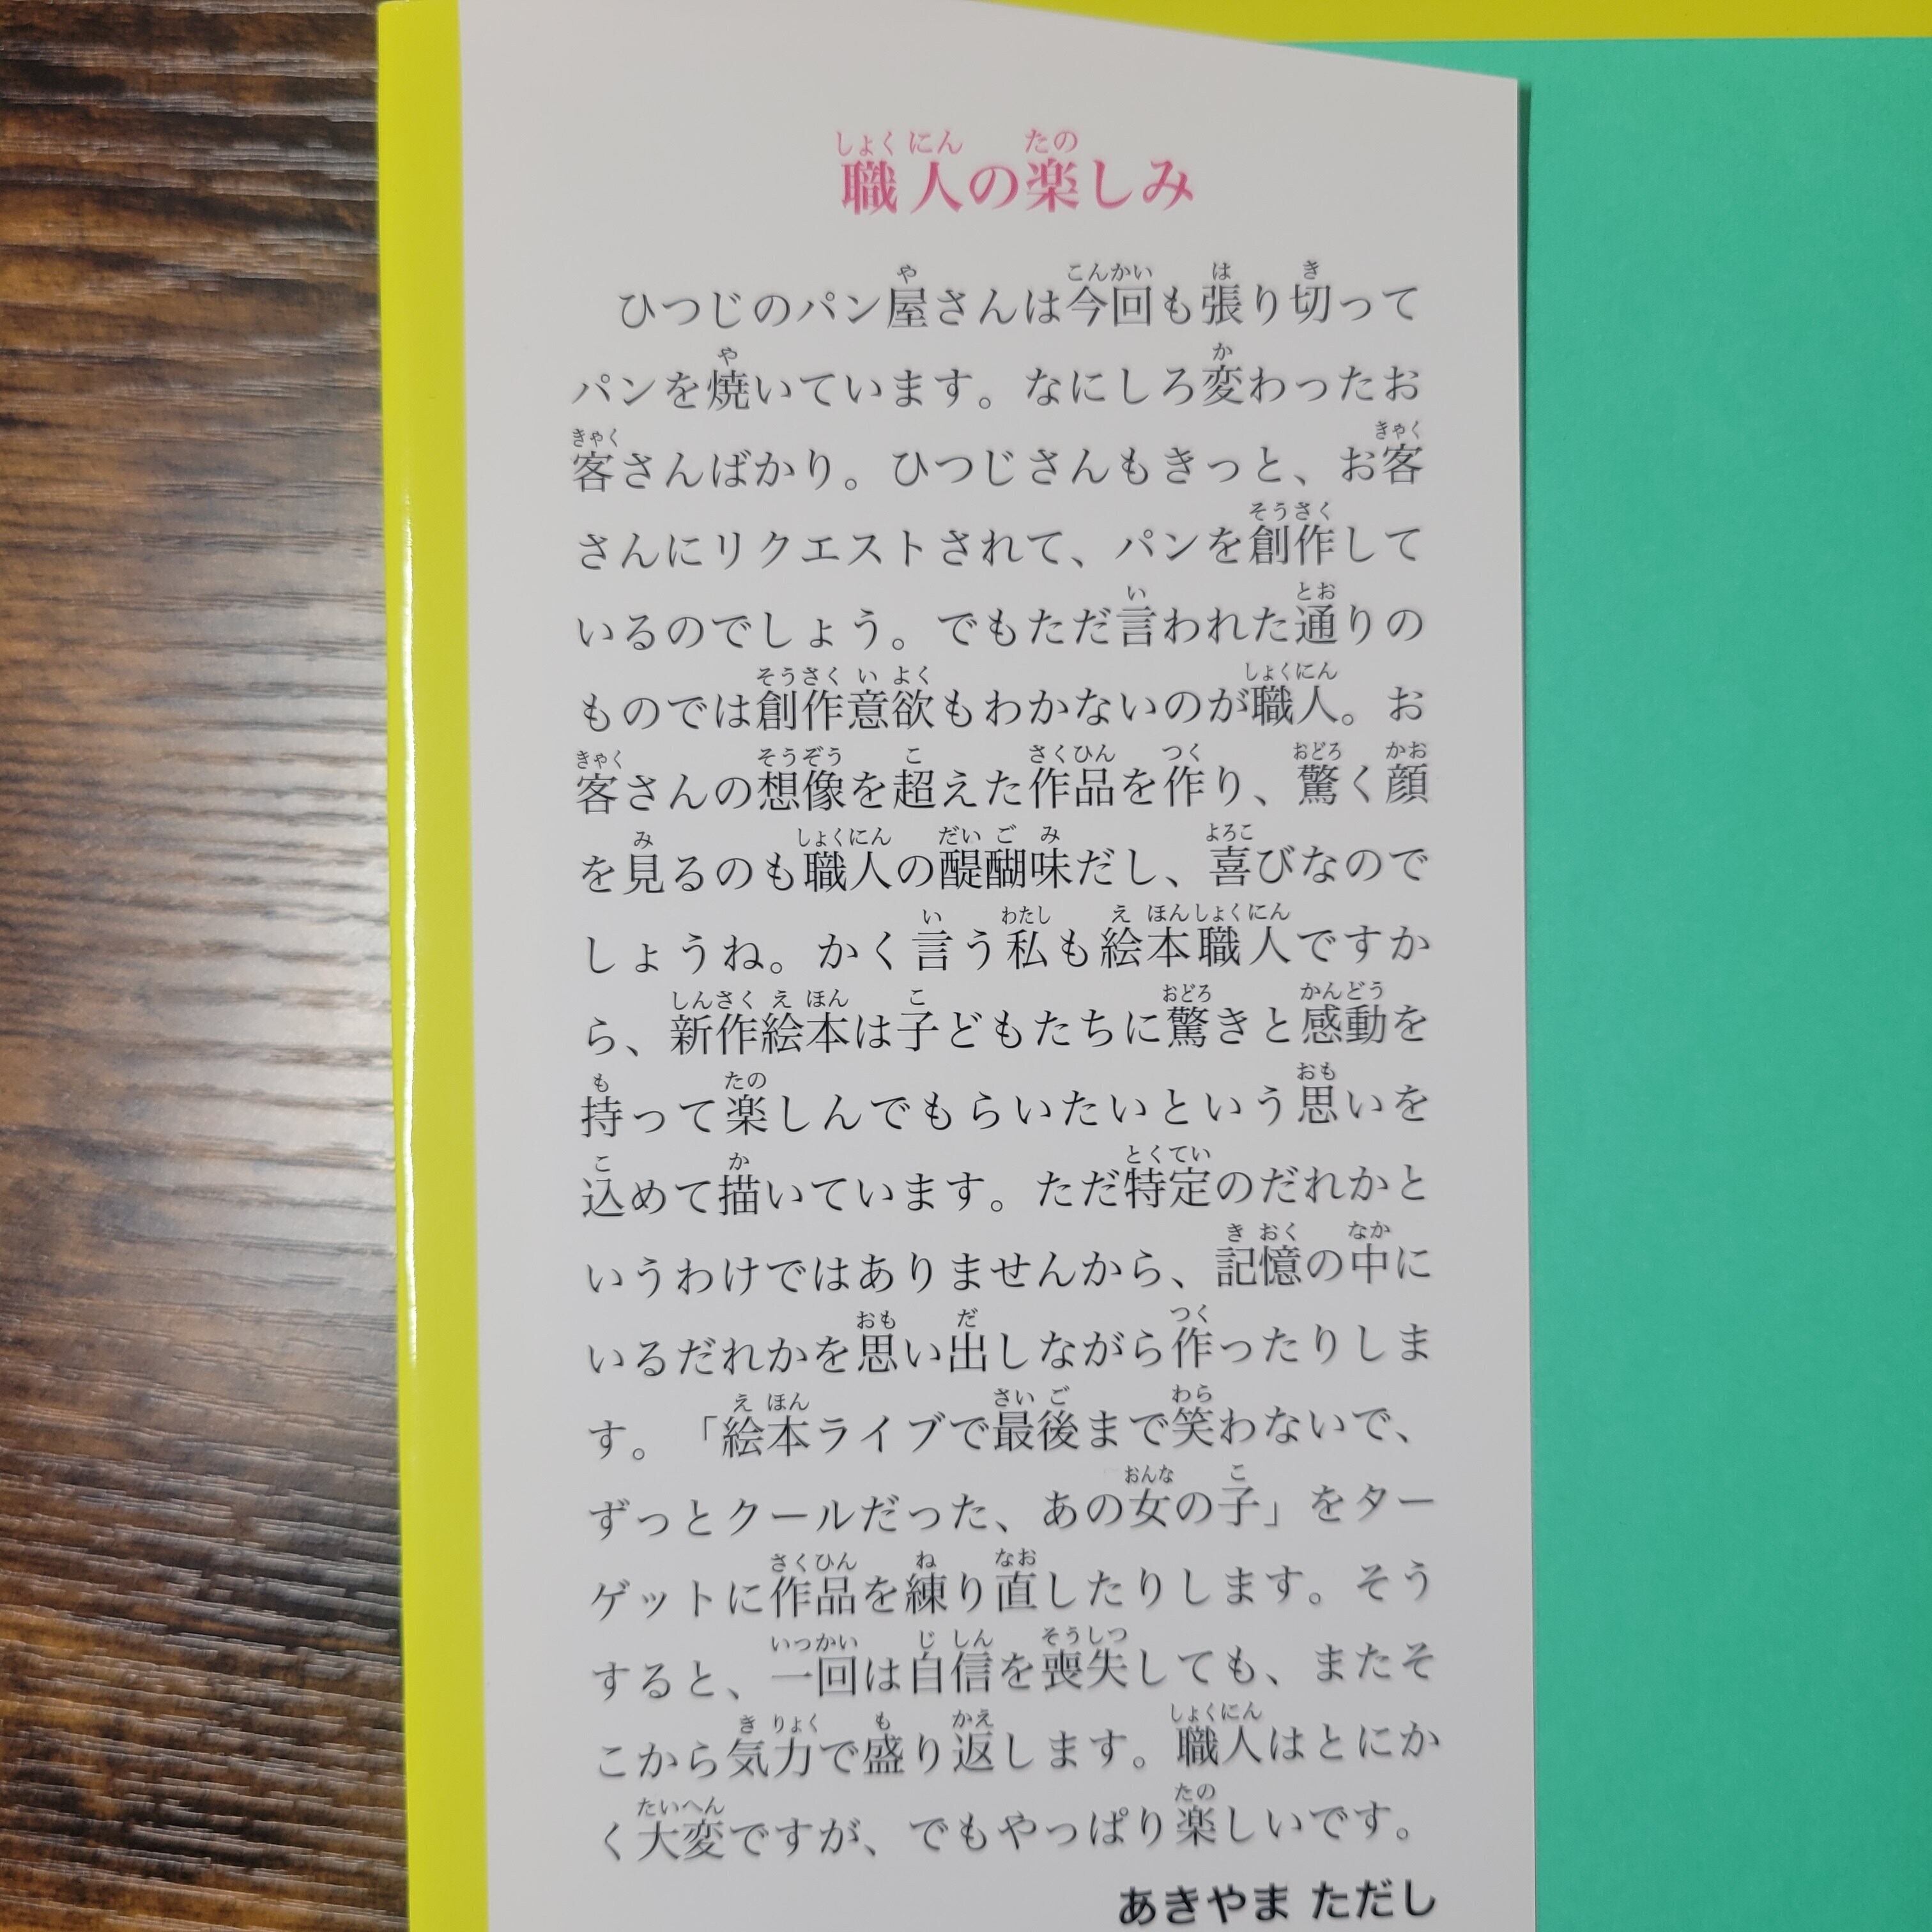 職人の楽しみ
ひつじのパン屋さんは今回も張り切って
パンを焼いています。なにしろ変わったお
客さんばかり。ひつじさんもきっと、お客
さんにリクエストされて、パンを創作して
いるのでしょう。でもただ言われた通りの
ものでは創作意欲もわかないのが職人。お
客さんの想像を超えた作品を作り、驚く顔
を見るのも職人の醍醐味だし、喜びなので
しょうね。かく言う私も絵本職人ですか
ら、新作絵本は子どもたちに驚きと感動を
持って楽しんでもらいたいという思いを
込めて描いています。ただ特定のだれかと
いうわけではありませんから、記憶の中に
いるだれかを思い出しながら作ったりしま
す。「絵本ライブで最後まで笑わないで、
ずっとクールだった、あの女の子」をター
ゲットに作品を練り直したりします。そう
すると、一回は自信を喪失しても、またそ
こから気力で盛り返します。職人はとにか
く大変ですが、でもやっぱり楽しいです。
あきやま ただし